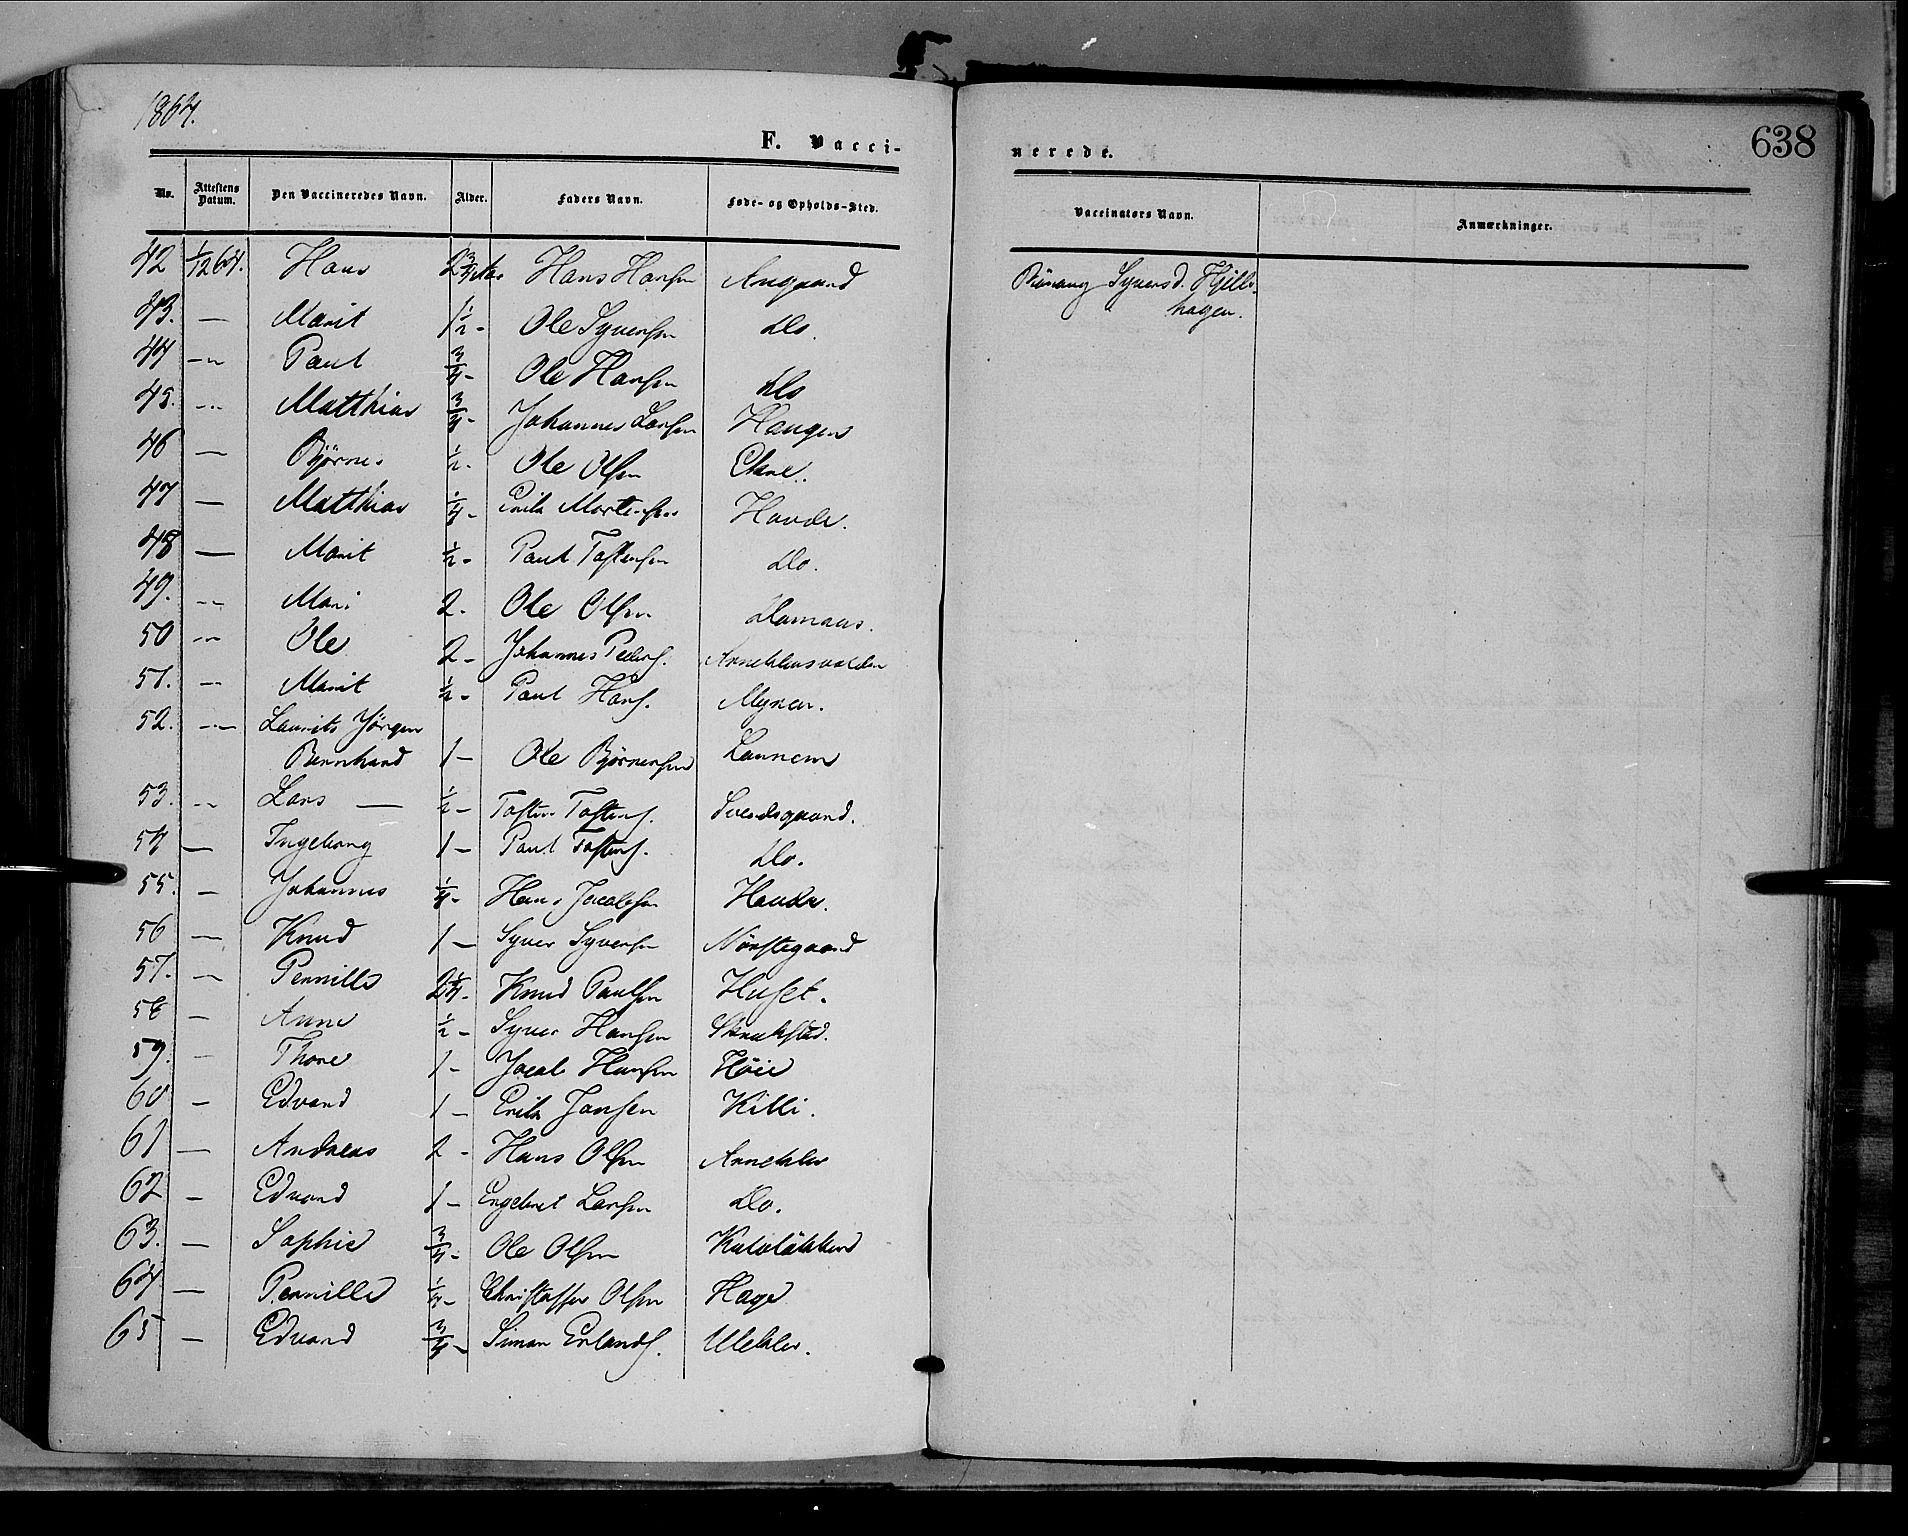 1864.
F. Vacci-
No. Attestens Datum. Den Vaccineredes Navn. Alder. Faders Navn. Føde- og Opholds-Sted.
42 1/12 64. Hans 2 3/4 Aar Hans Hansen Augaard
43. — Marit 1 1/2 - Ole Syversen Do.
44 — Paul 3/4 - Ole Hansen Do
45. — Matthias 3/4 - Johannes Larsen Haugen
46 — Bjørner 1/2 - Ole Olsen
47 — Matthias 1/4 - Erik Mortensen Haude.
48 — Marit 1/2 - Paul Tostensen Do.
49. — Mari 2. Ole Olsen
50 — Ole 2 - Johannes Peders.
51. — Marit 1/2 - Paul Hans. Myren.
52. — Laurits Jørgen
Bernhard 1 — Ole Bjørnersen Lannem
53. — Lars — 1/2 - Tosten Tostens. Svendsgaard.
54 — Ingeborg 1 — Paul Tostens. Do.
55. — Johannes 1/4 - Hans Jacobsen Haude.
56 — Knud 1 — Syver Syversen Nørstegaard
57. — Pernille 2 1/4 - Knud Paulsen Huset.
58 — Anne 1/2 - Syver Hansen
59. — Thore 1 - Jacob Hansen Høie
60 — Edvard 1 — Erik Jansen Killi.
61 — Andreas 2 - Hans Olsen Arneklev
62 — Edvard 1 - Engebret Larsen Do.
63. — Sophie 3/4 - Ole Olsen
64. — Pernille Christoffer Olsen Hage
65 — Edvard 3/4 - Simon Erlands. Uleklev.
638
nerede.
Vaccinatørs Navn. Anmærkninger.
Rønnaug Syversd. Hjells-
hagen.